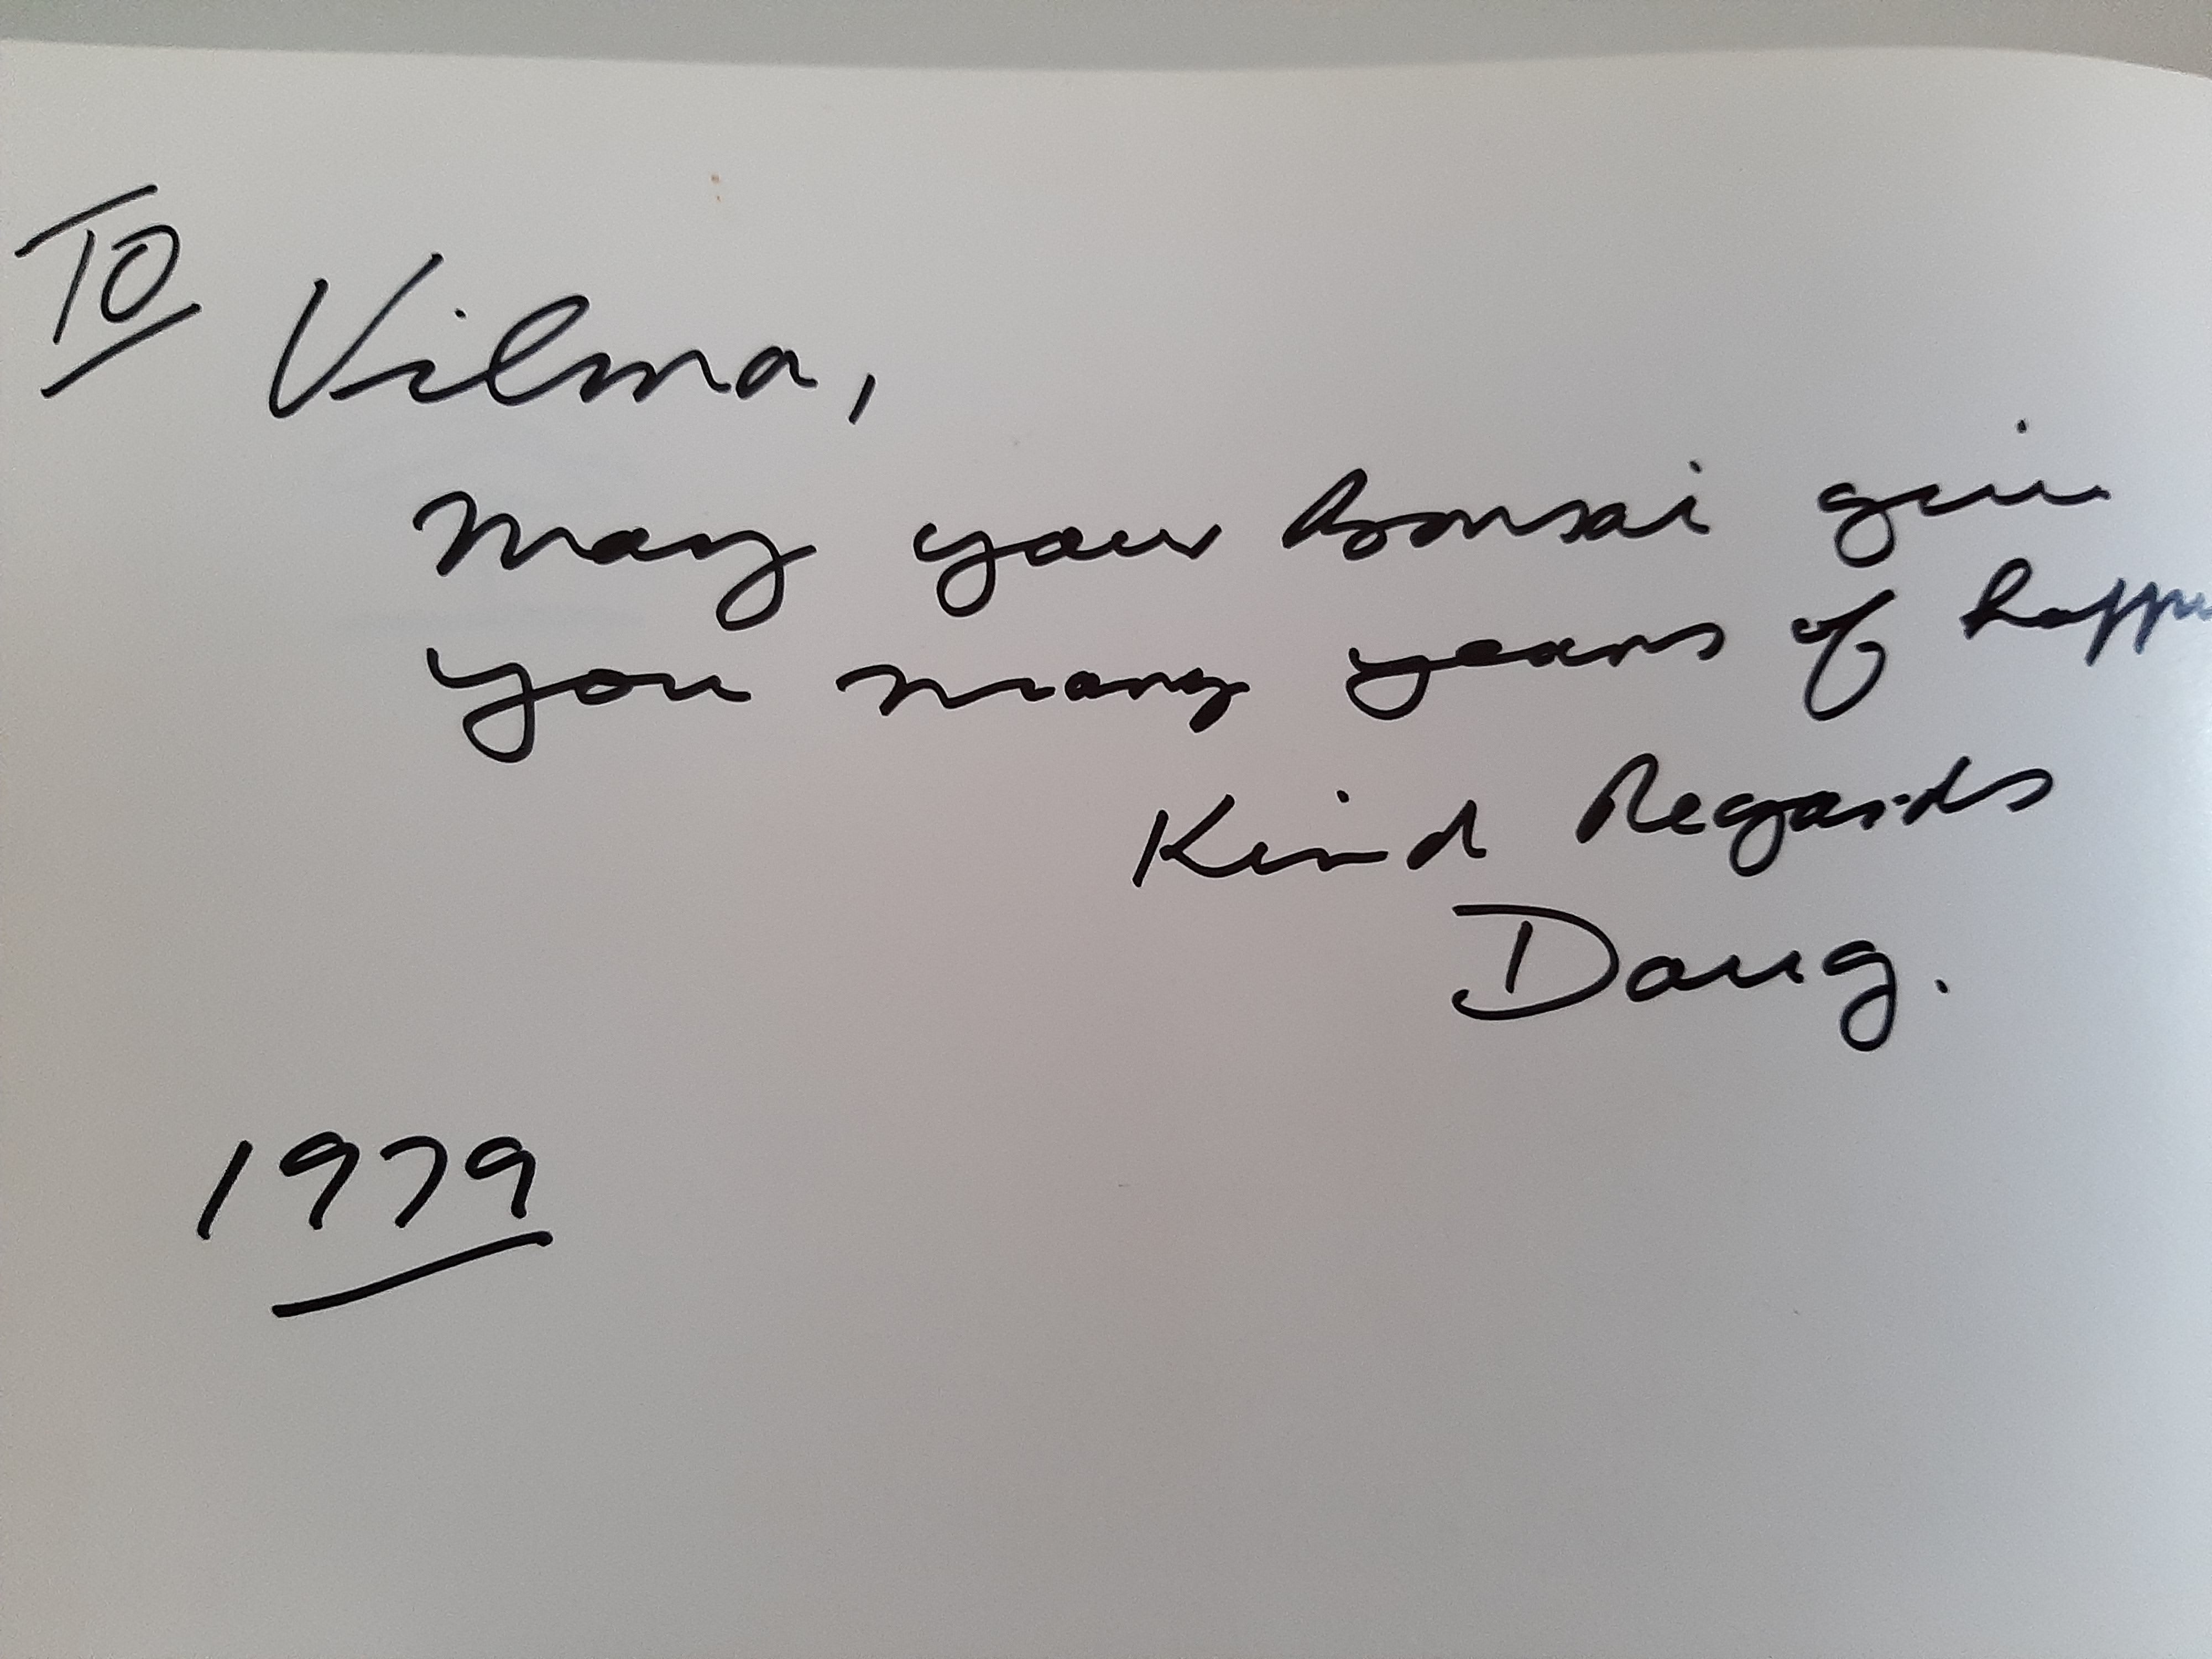 TO Vilma,
May your bonsai give
you many years of happ
Kind Regards
Doug.
1979